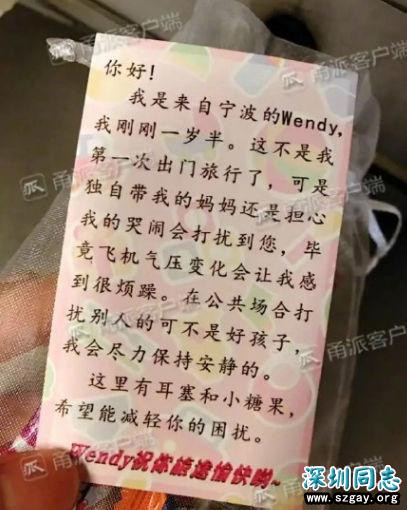 你好!
我是来自宁波的Wendy,
我刚刚一岁半。这不是我
第一次出门旅行了，可是
独自带我的妈妈还是担心
我的哭闹会打扰到您，毕
竟飞机气压变化会让我感
到很烦躁。在公共场合打
扰别人的可不是好孩子，
我会尽力保持安静的。
这里有耳塞和小糖果，
希望能减轻你的困扰。
Wendy祝你旅途愉快哟~
甬派客户端
甬派客户端
甬派客户端
甬派客户端
深圳同志
www.szgay.org